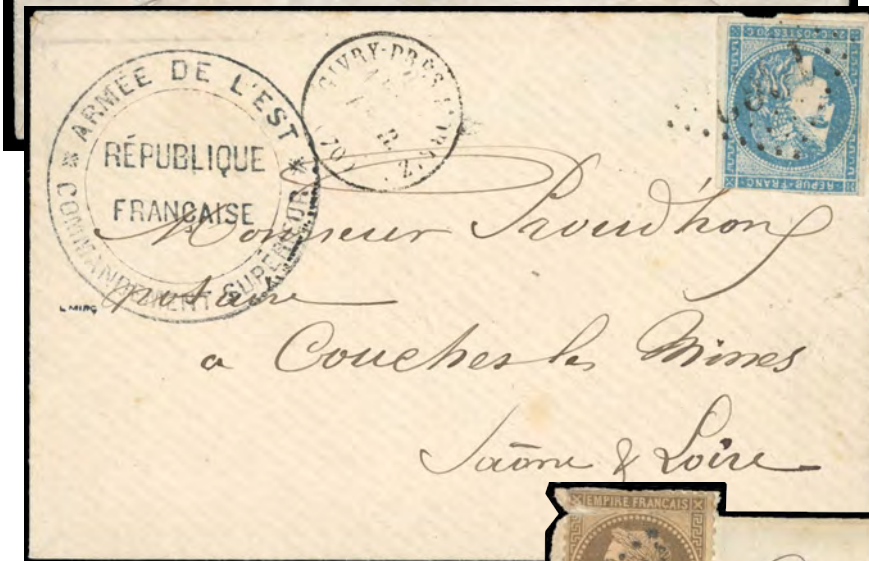 * ARMÉE DE L'EST *
RÉPUBLIQUE
FRANÇAISE
COMMANDEMENT SUPÉRIEUR
GIVRY-PRÈS-L'ORBIZE
(70)
POSTES 20 C.
REPUB. FRANC.
Monsieur Proudhon
notaire
a Couches les Mines
Saône & Loire
EMPIRE FRANÇAIS